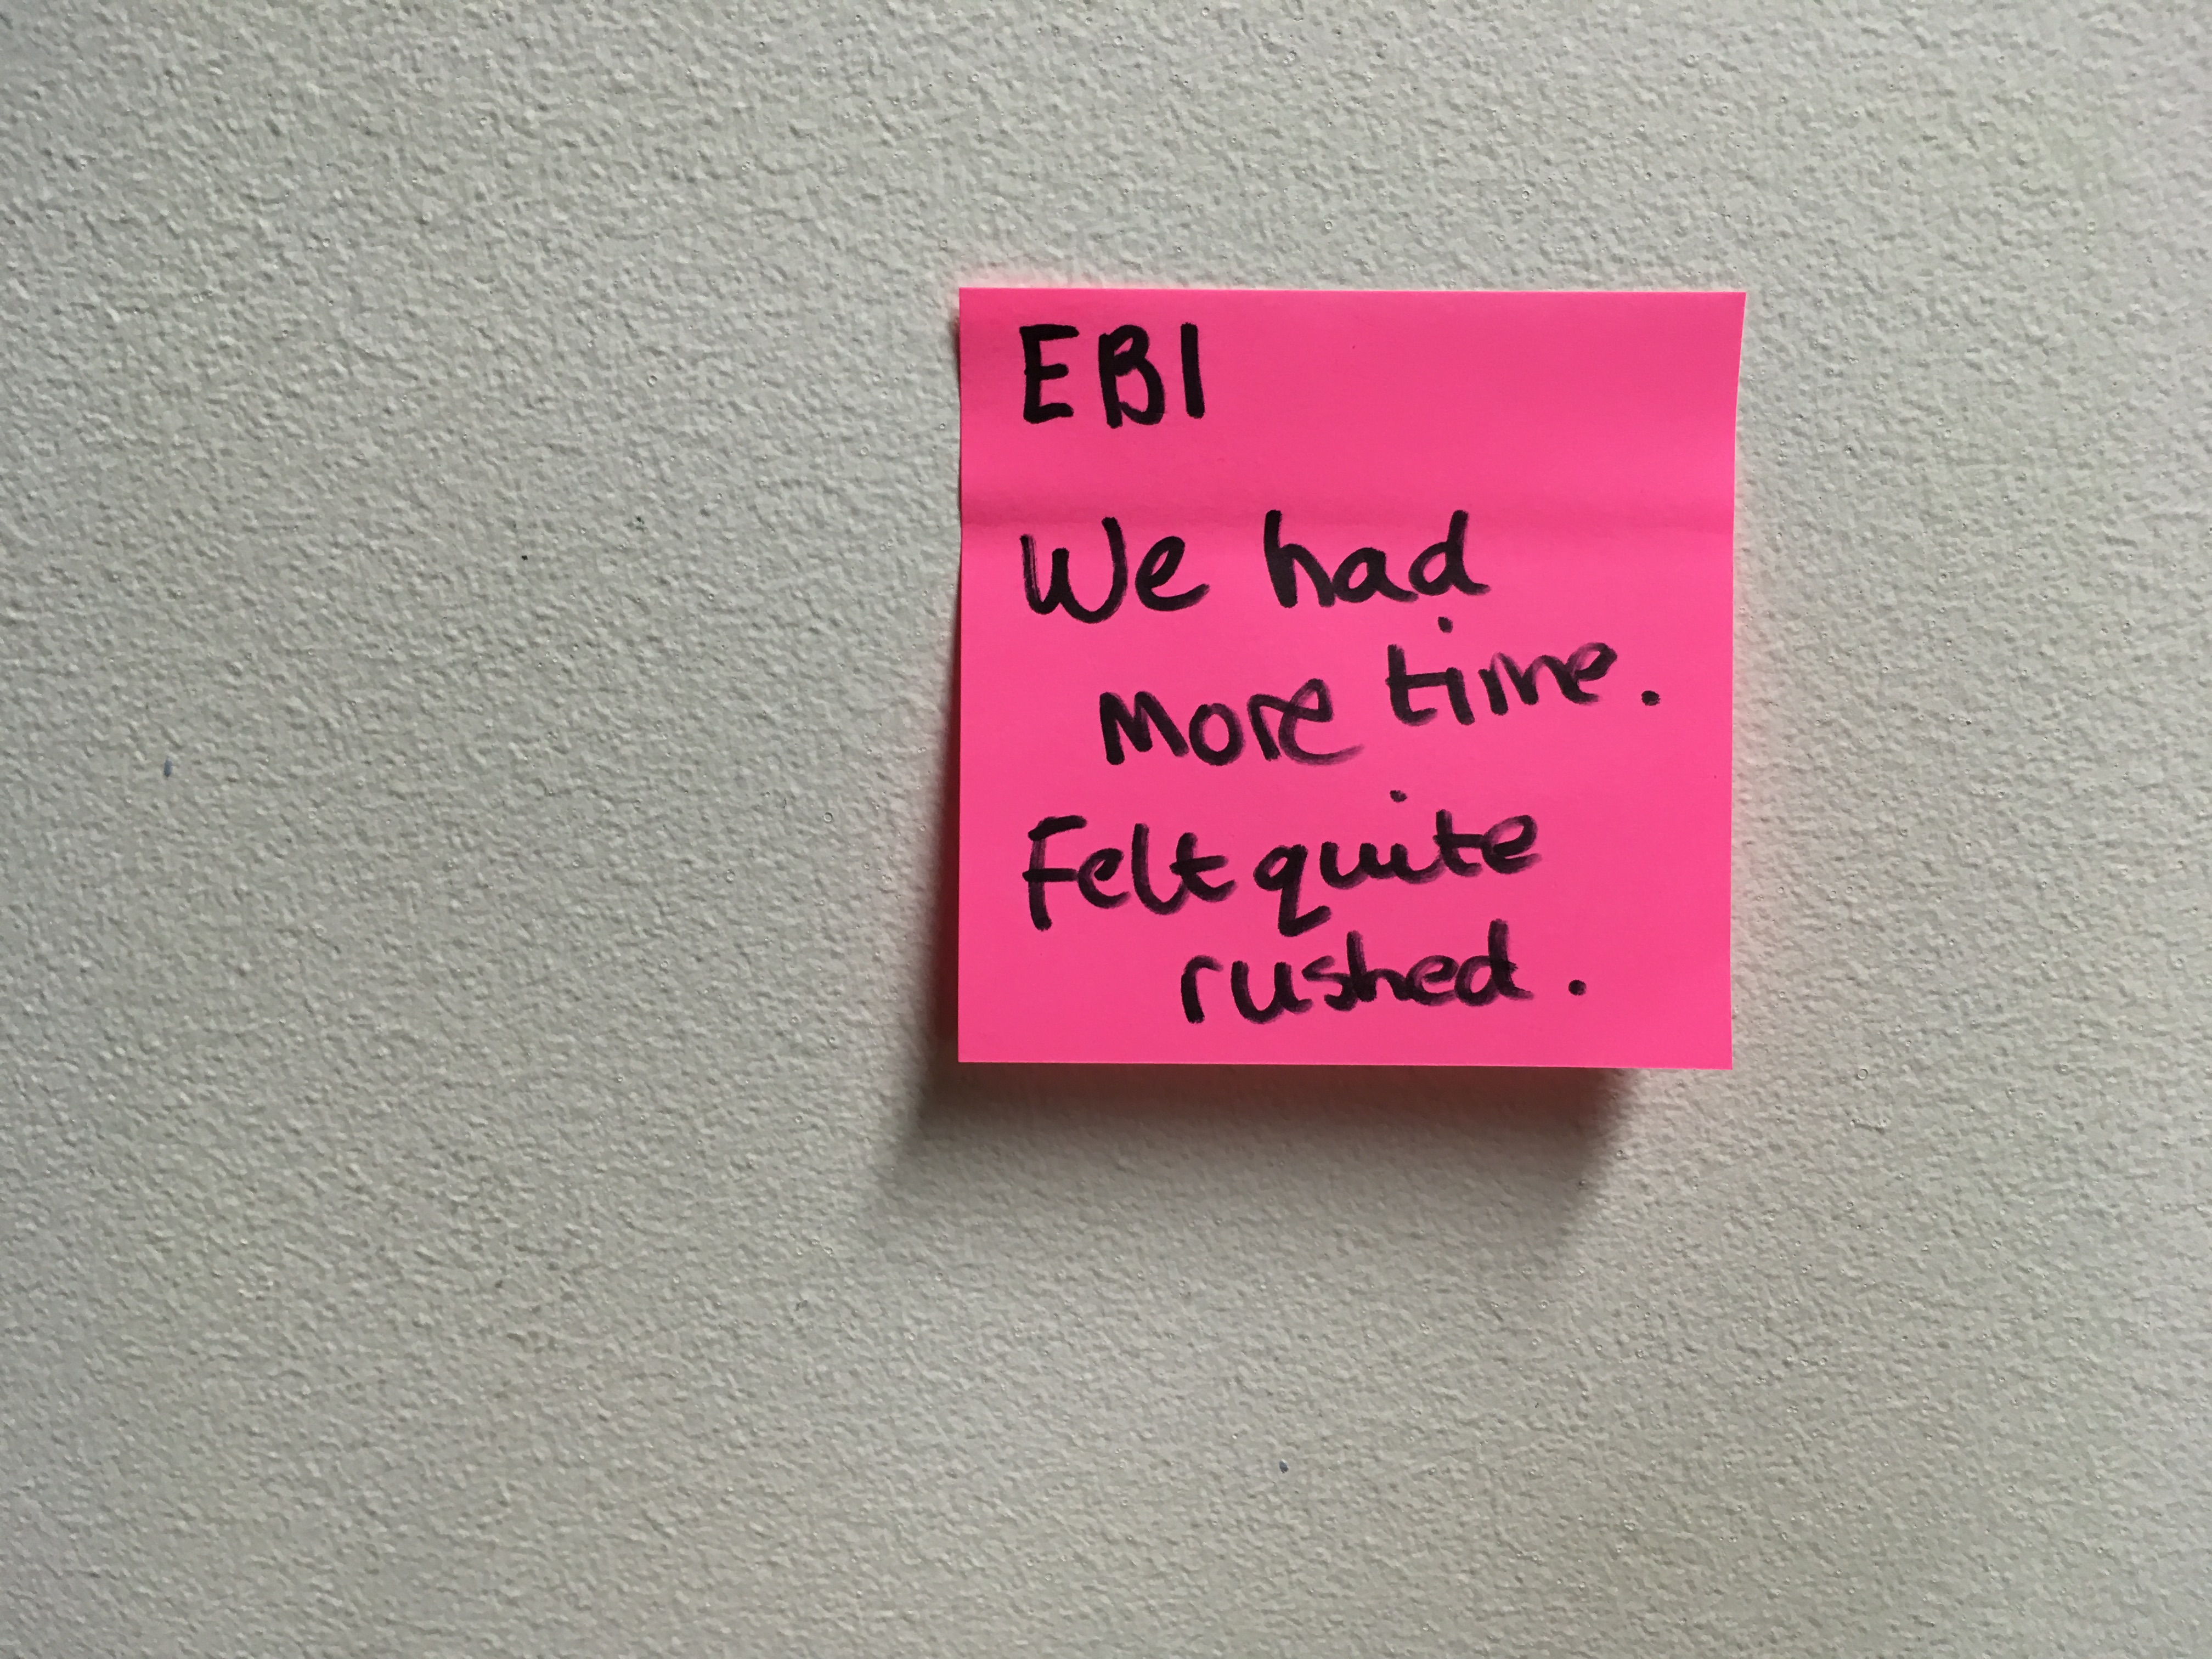 EBI
We had
more time.
Felt quite
rushed.